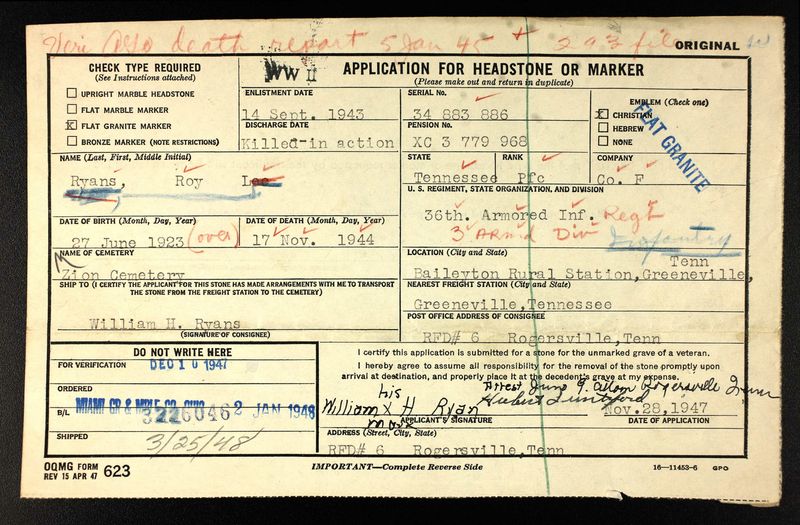 Veri AGO death report 5 Jan 45 + 293 file
ORIGINAL
CHECK TYPE REQUIRED
(See Instructions attached)
UPRIGHT MARBLE HEADSTONE
FLAT MARBLE MARKER
X FLAT GRANITE MARKER
BRONZE MARKER (NOTE RESTRICTIONS)
WW II
APPLICATION FOR HEADSTONE OR MARKER
(Please make out and return in duplicate)
ENLISTMENT DATE
14 Sept. 1943
DISCHARGE DATE
Killed-in action
SERIAL No.
34 883 886
PENSION No.
XC 3 779 968
EMBLEM (Check one)
X CHRISTIAN
HEBREW
NONE
FLAT GRANITE
NAME (Last, First, Middle Initial)
Ryans, Roy Lee
STATE
Tennessee
RANK
Pfc
COMPANY
Co. F
U. S. REGIMENT, STATE ORGANIZATION, AND DIVISION
36th. Armored Inf. Regt
3 ARM'D Div
Infantry
DATE OF BIRTH (Month, Day, Year)
27 June 1923 (over)
DATE OF DEATH (Month, Day, Year)
17 Nov. 1944
NAME OF CEMETERY
Zion Cemetery
LOCATION (City and State)
Tenn
Baileyton Rural Station, Greeneville,
SHIP TO (I CERTIFY THE APPLICANT FOR THIS STONE HAS MADE ARRANGEMENTS WITH ME TO TRANSPORT
THE STONE FROM THE FREIGHT STATION TO THE CEMETERY)
William H. Ryans
(SIGNATURE OF CONSIGNEE)
NEAREST FREIGHT STATION (City and State)
Greeneville,Tennessee
POST OFFICE ADDRESS OF CONSIGNEE
RFD# 6 Rogersville,Tenn
DO NOT WRITE HERE
FOR VERIFICATION
DEC 10 1947
ORDERED
MIAMI GR & MBLE CO.
B/L
3226046 2 JAN 1948
SHIPPED
3/25/48
I certify this application is submitted for a stone for the unmarked grave of a veteran.
I hereby agree to assume all responsibility for the removal of the stone promptly upon
arrival at destination, and properly place it at the decedent's grave at my expense.
his
William X H Ryan
mark
APPLICANT'S SIGNATURE
Nov.28,1947
DATE OF APPLICATION
ADDRESS (Street, City, State)
RFD# 6 Rogersville,Tenn
OQMG FORM
REV 15 APR 47 623
IMPORTANT—Complete Reverse Side
16—11453-6 GPO